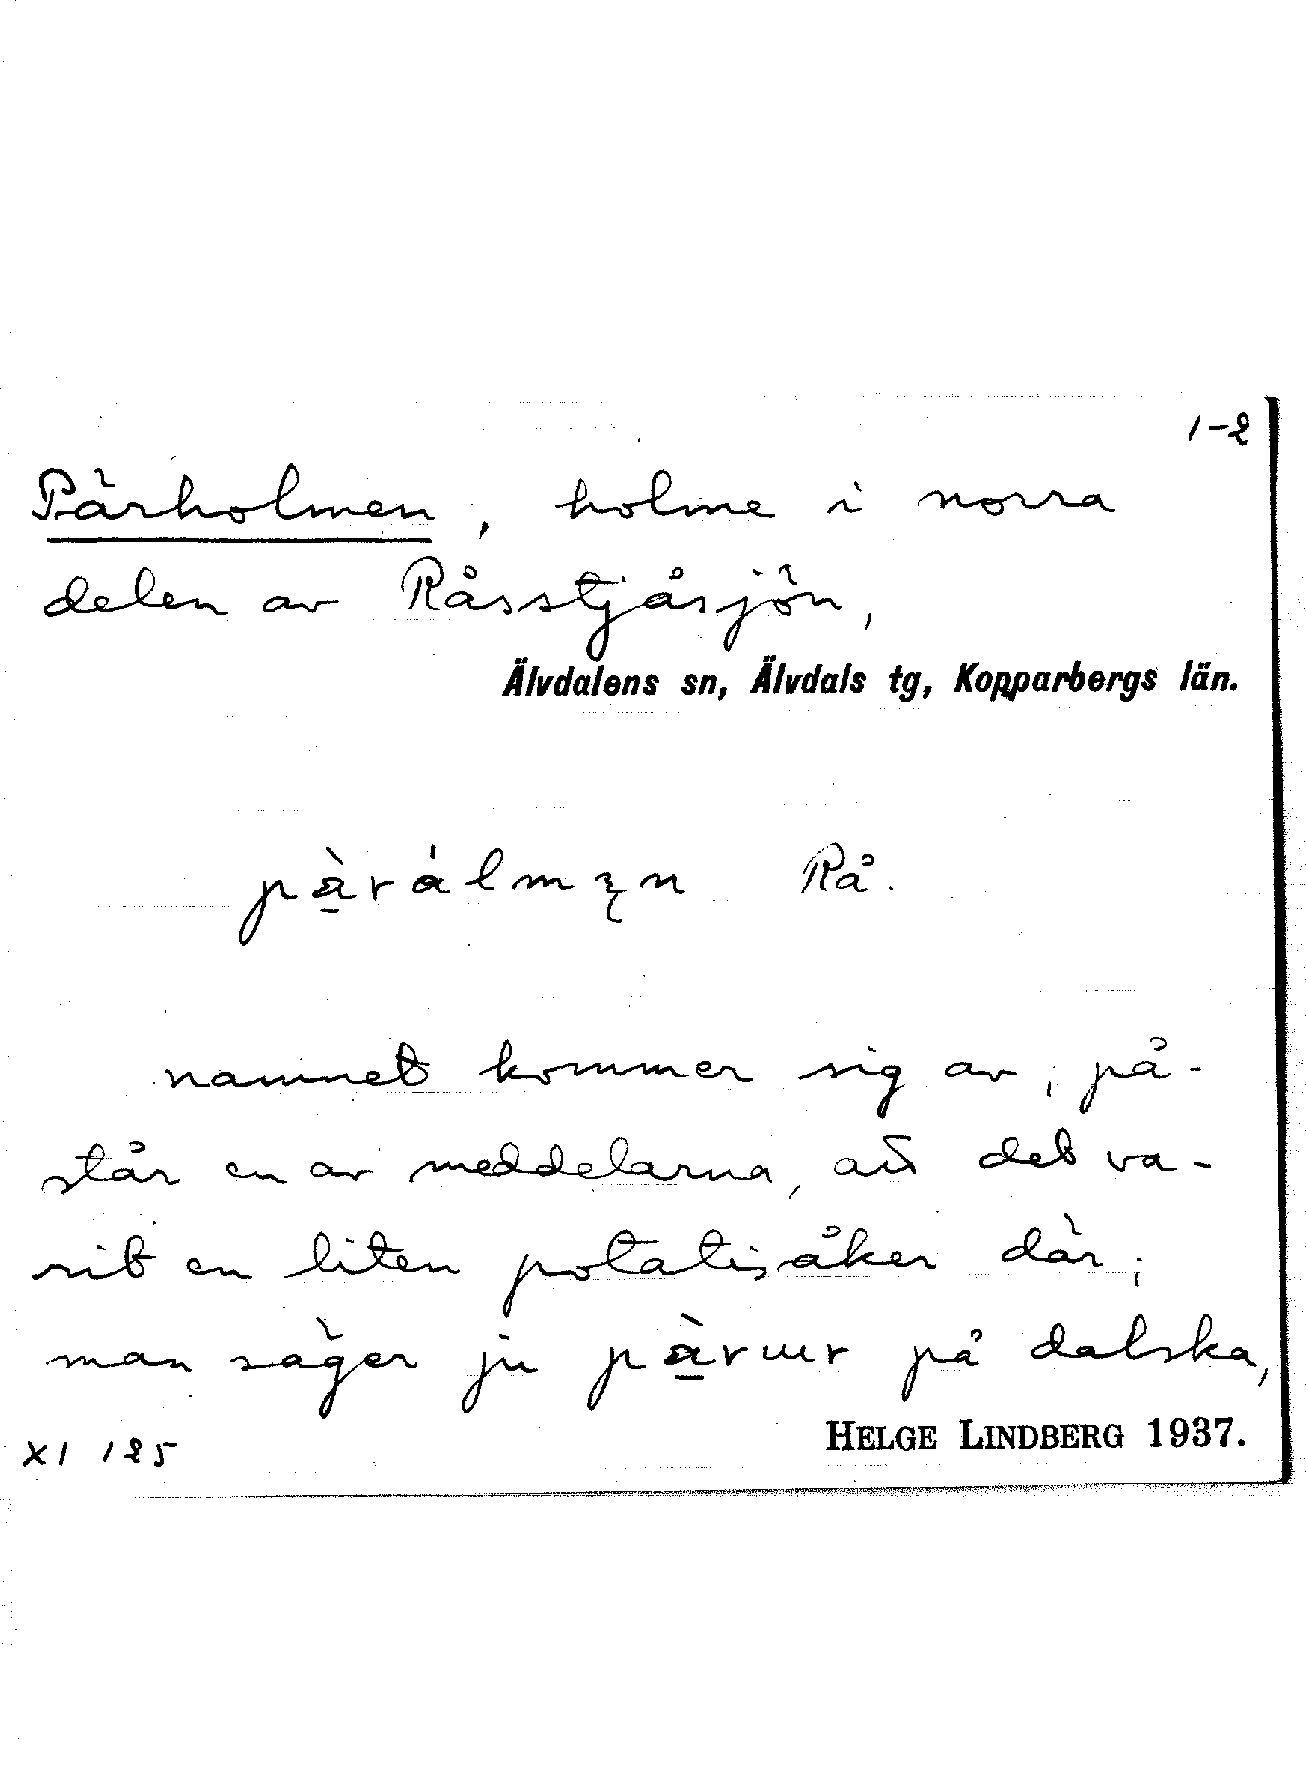 1-2
Pärholmen, holme i norra
delen av Råsstjåsjön,
Älvdalens sn, Älvdals tg, Kopparbergs län.
Rå.
namnet kommer sig av, på-
står en av meddelarna, att det va-
rit en liten potatisåker där;
man säger ju på dalska,
XI 125
HELGE LINDBERG 1937.